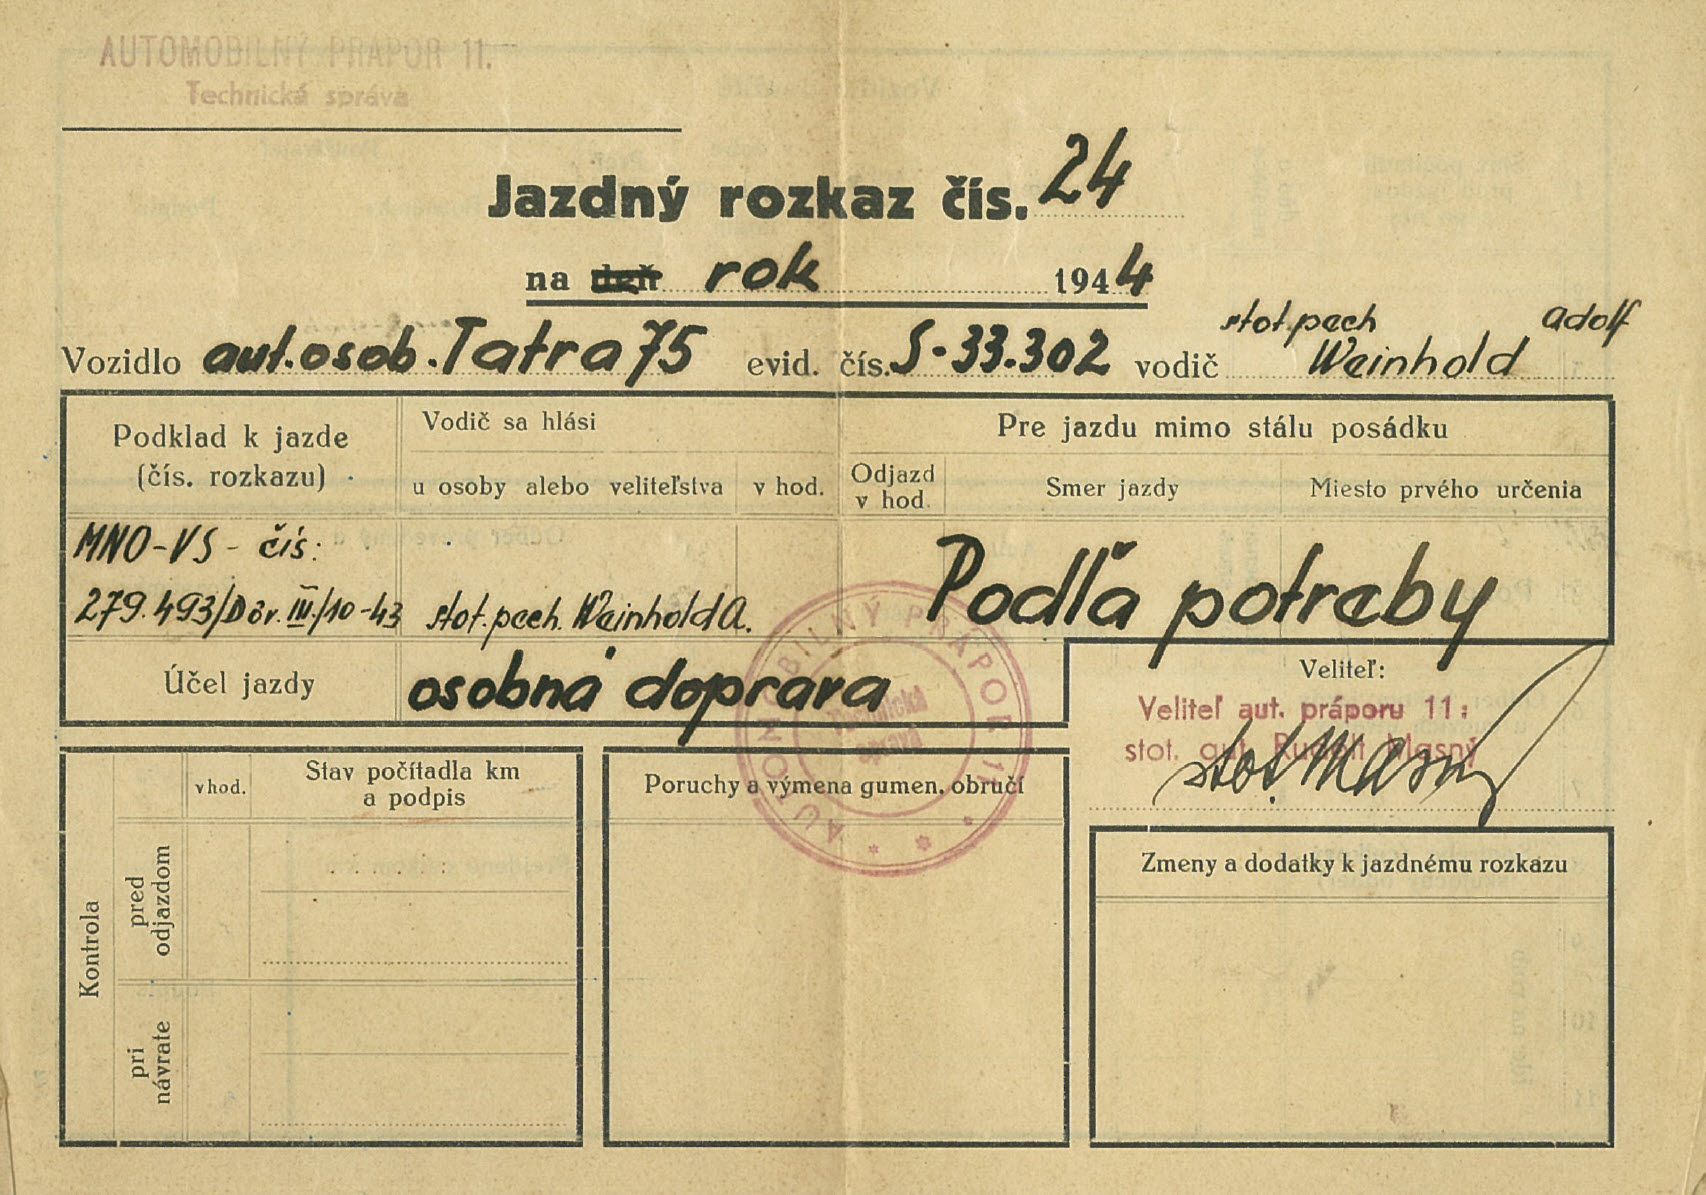 AUTOMOBILNÝ PRAPOR 11.
Technická správa
Jazdný rozkaz čís. 24
na deň rok 1944
stot.pech Adolf
Vozidlo aut.osob.Tatra 75 evid. čís. S-33.302 vodič Weinhold
Podklad k jazde
(čís. rozkazu)
Vodič sa hlási
u osoby alebo veliteľstva
v hod.
Pre jazdu mimo stálu posádku
Odjazd
v hod.
Smer jazdy
Miesto prvého určenia
MNO-VS- čís:
279.493/Dôv.III/10-43
stot.pech. Weinhold A.
Podľa potreby
Účel jazdy
osobná doprava
AUTOMOBILNÝ PRÁPOR 11
Technická
správa
Veliteľ:
Veliteľ aut. práporu 11:
stot. aut. Rudolf Mlasný
Kontrola
v hod.
Stav počítadla km
a podpis
pred
odjazdom
pri
návrate
Poruchy a výmena gumen. obručí
Zmeny a dodatky k jazdnému rozkazu